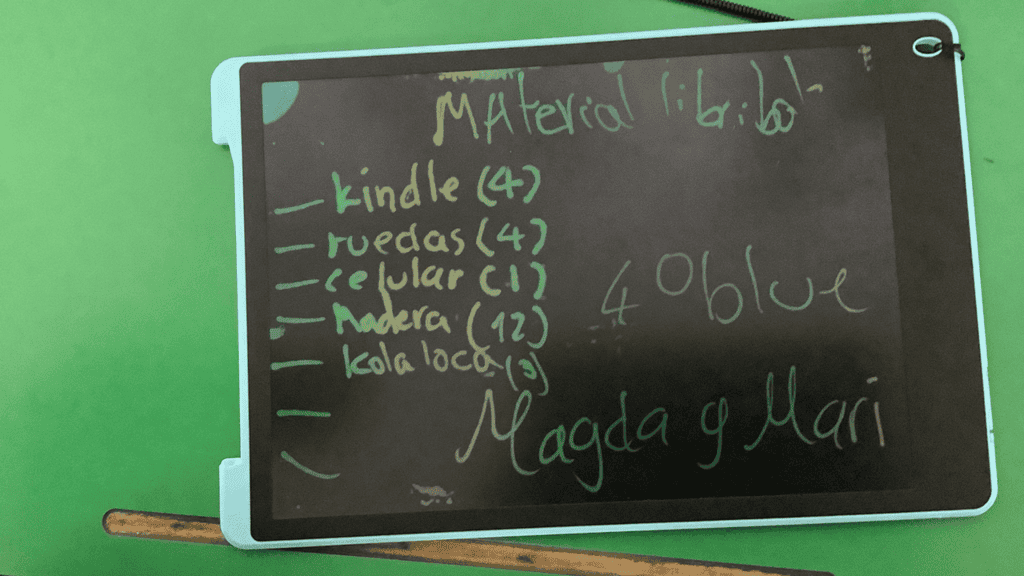 Material libribot
kindle (4)
ruedas (4)
celular (1)
Madera (12)
kola loca (3)
4º blue
Magda y Mari